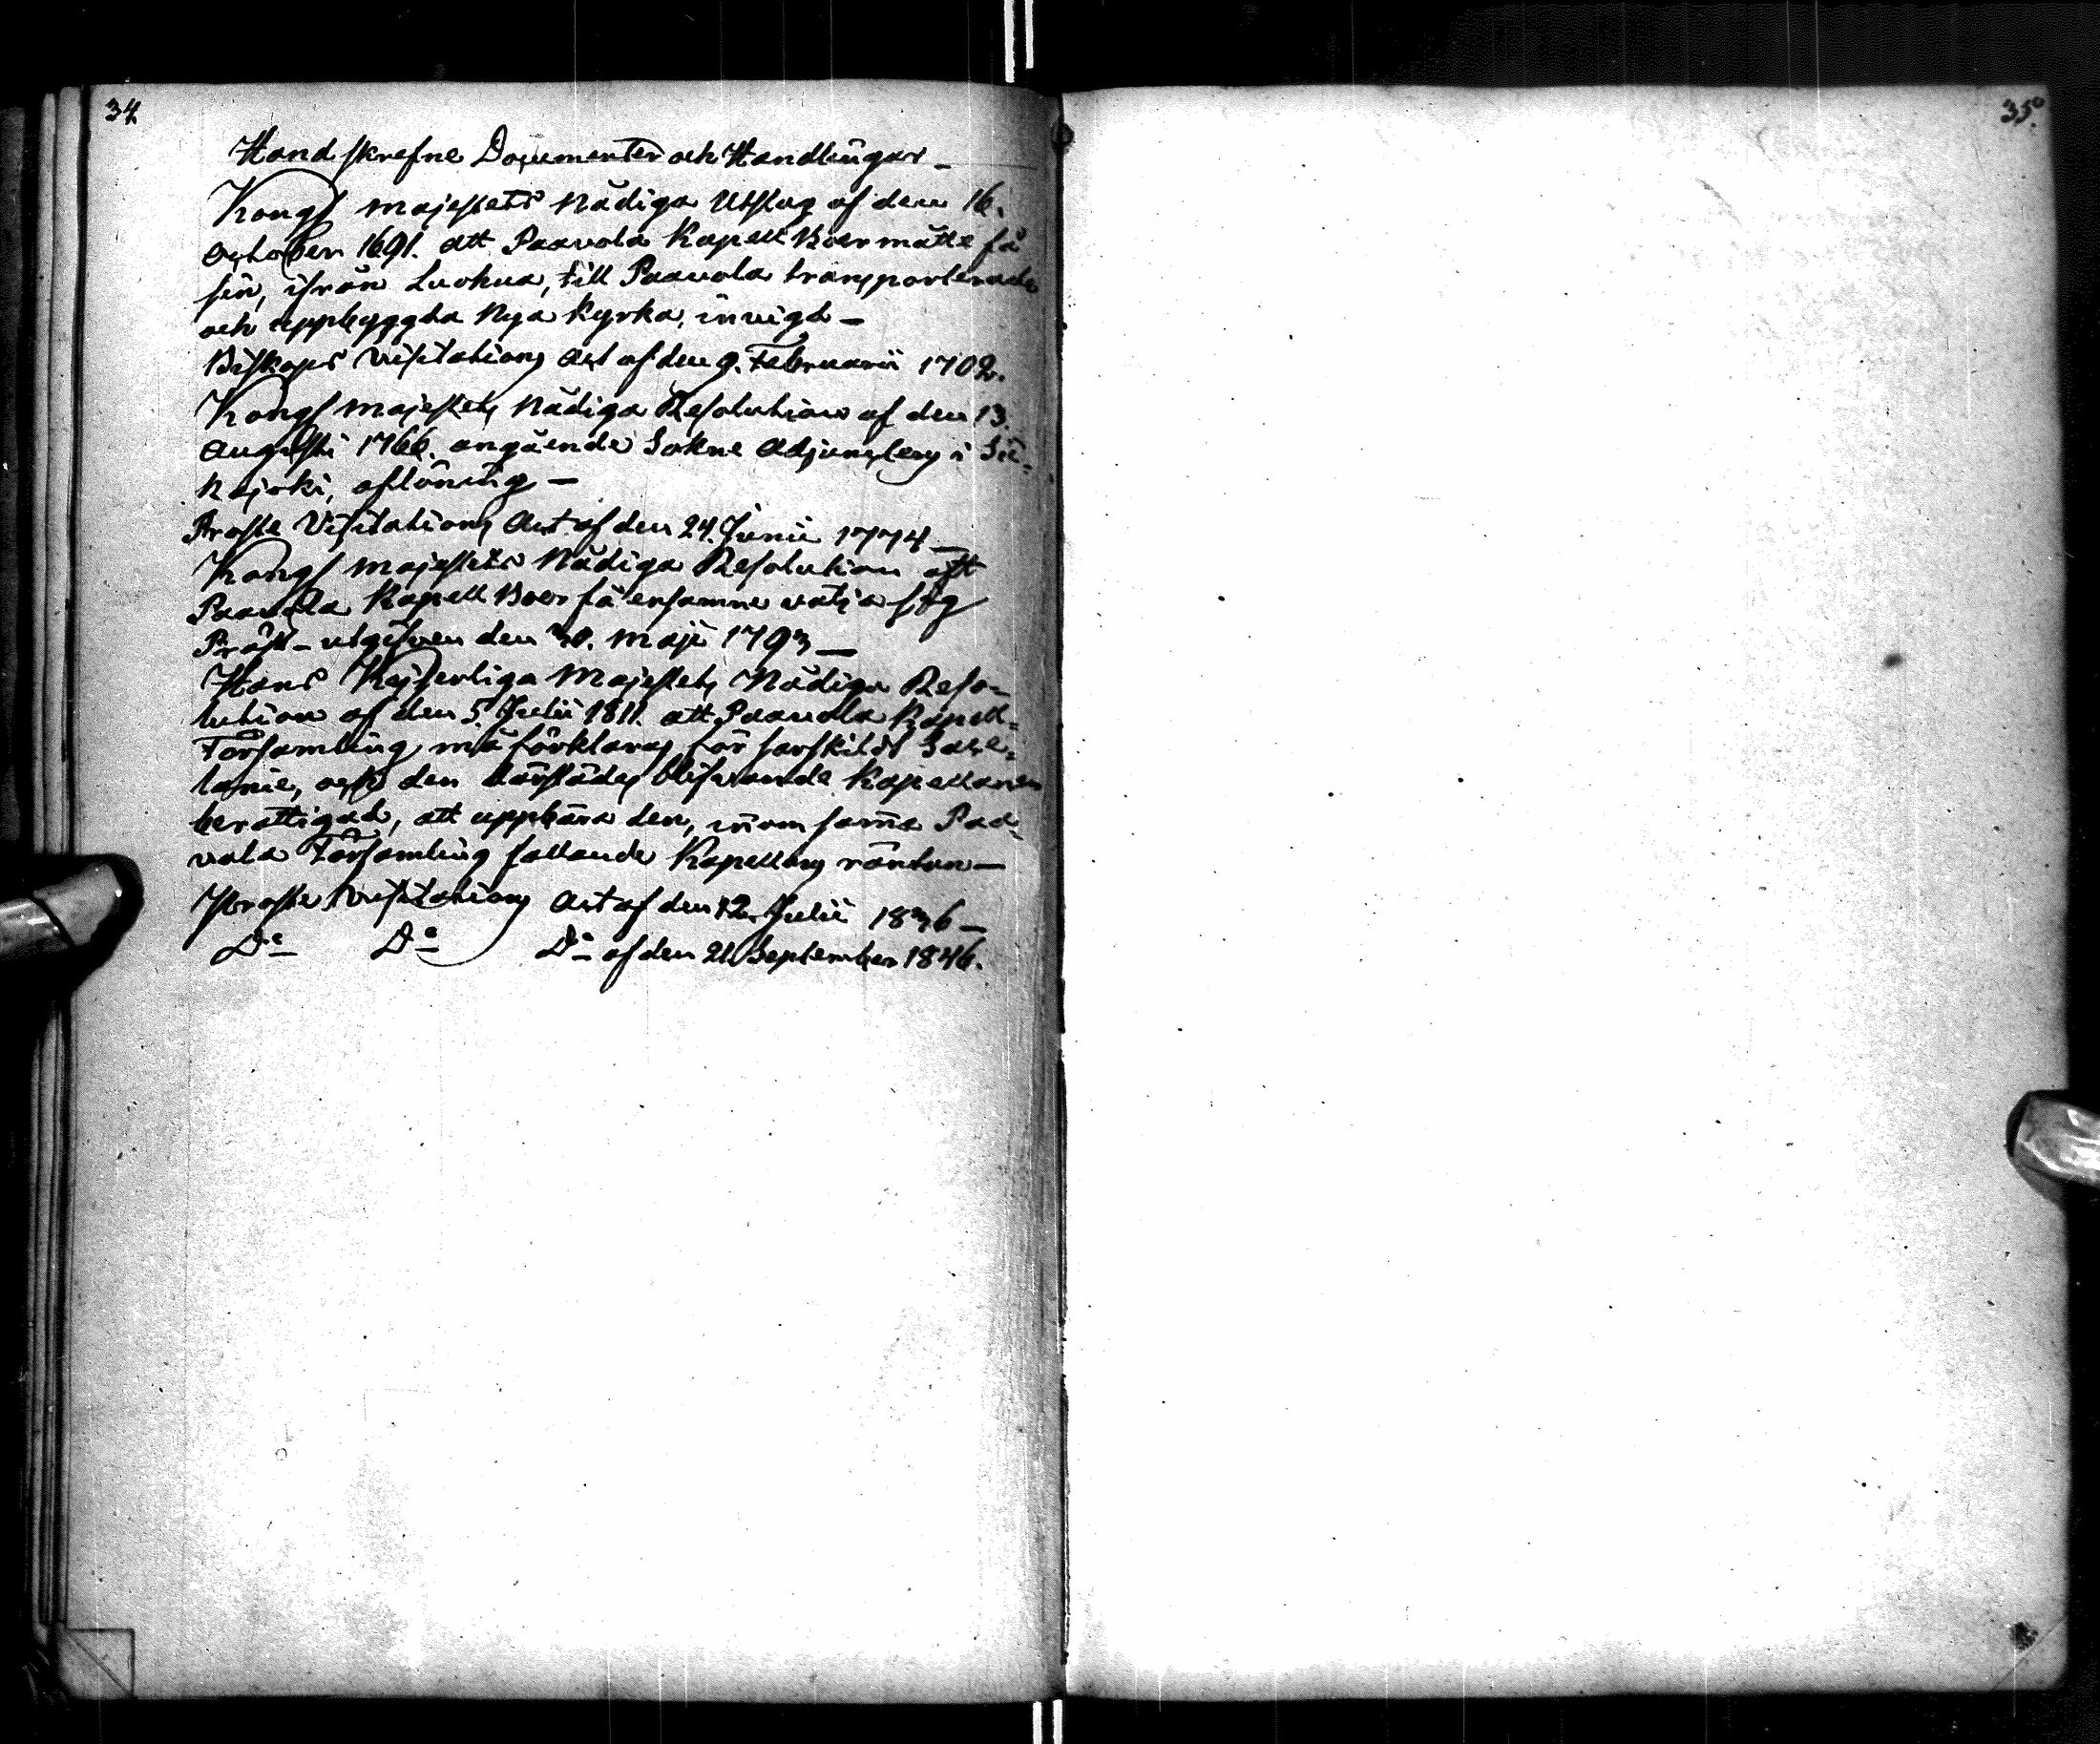 34.
Handskrefne Documenter och Handlingar_
Kongl Majestets Nådiga Utslag af den 16.
October 1691. att Paavola Kapell Boer måtte få
sin, ifrån Luohua, till Paavola transporterade
och uppbyggda Nya Kyrka, invigd_
Biskops Visitations Act af den 9. Februarii 1702.
Kongl Majestets Nådiga Resolution af den 13.
Augusti 1766. angående Sokne Adjunctens i Sii-
kajoki, aflöning_
Prosts Visitations Act af den 24. Junii 1774_
Kongl Majestets Nådiga Resolution att
Paavola Kapell Boer få ensamne välja sig
Präst_ utgifven den 30. Maji 1793_
Hans Kejserliga Majestets Nådiga Reso-
lution af den 5. Julii 1811. att Paavola Kapell-
Församling må förklaras för särskildt Sacel-
lanie, och den därstädes blifvande Kapellanen
berättigad, att uppbära den, inom samma Paa-
vola Församling fallande Kapellans räntan_
Prosts Visitations Act af den 12. Julii 1836_
Do Do Do af den 21. September 1846.
35.